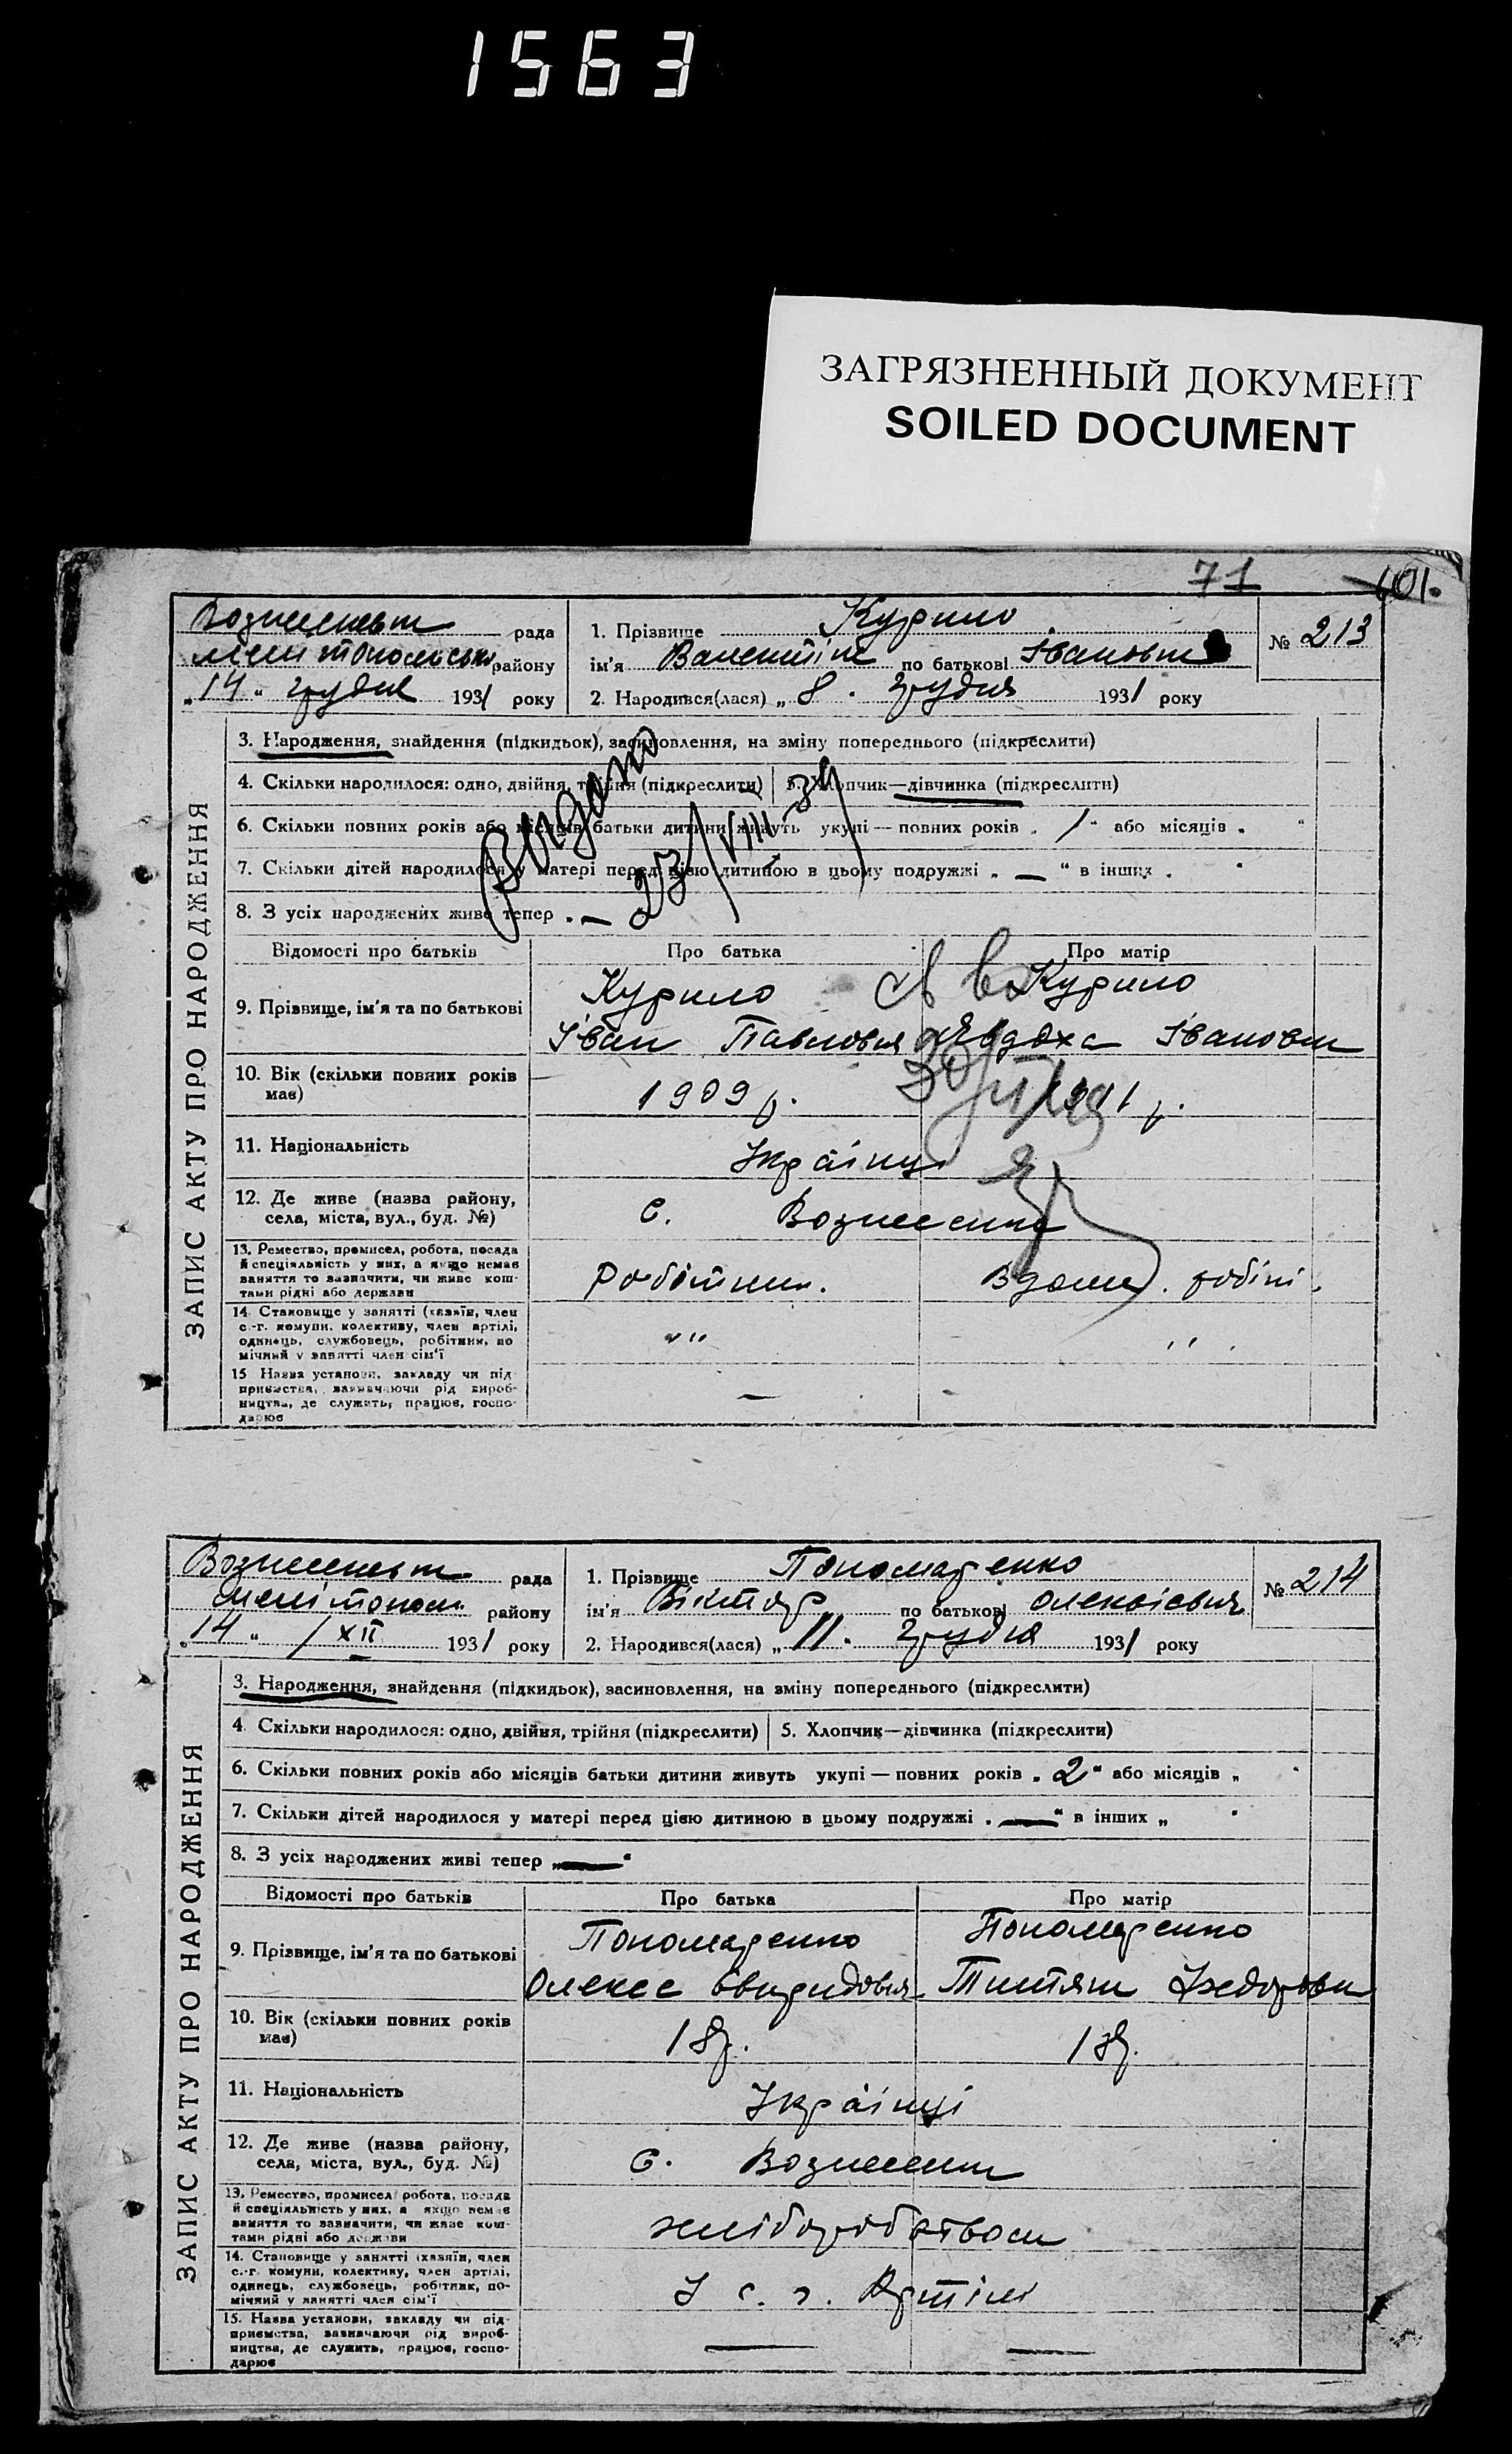 1563
ЗАГРЯЗНЕННЫЙ ДОКУМЕНТ
SOILED DOCUMENT
71 101.
ЗАПИС АКТУ ПРО НАРОДЖЕННЯ
рада
району
„14“ грудня 1931 року
1. Прізвище Курило № 213
ім'я по батькові
2. Народився(лася) „8“ грудня 1931 року
3. Народження, знайдення (підкидьок), засиновлення, на зміну попереднього (підкреслити)
4. Скільки народилося: одно, двійня, трійня (підкреслити) 5. Хлопчик—дівчинка (підкреслити)
6. Скільки повних років або місяців батьки дитини живуть укупі — повних років „1“ або місяців „ “
7. Скільки дітей народилося у матері перед цією дитиною в цьому подружжі „—“ в інших „ “
8. З усіх народжених живі тепер „—
Видано
23/VIII
Відомості про батьків Про батька Про матір
9. Прізвище, ім'я та по батькові
Курило Курило
Іван Явдоха
10. Вік (скільки повних років має)
1909 р. 1911 р.
11. Національність
Українці
12. Де живе (назва району,
села, міста, вул., буд. №)
с.
13. Ремество, промисел, робота, посада
й спеціяльність у них, а якщо немає
заняття то зазначити, чи живе кош-
тами рідні або держави
14. Становище у занятті (хазяїн, член
с.-г. комуни, колективу, член артілі,
одинець, службовець, робітник, по
мічний у занятті член сім'ї
15 Назва установи, закладу чи під
приємства, зазначаючи рід вироб-
ництва, де служить, працює, госпо-
дарює
ЗАПИС АКТУ ПРО НАРОДЖЕННЯ
рада
району
„14“ / XII 1931 року
1. Прізвище Пономаренко № 214
ім'я Віктор по батькові
2. Народився(лася) „11“ грудня 1931 року
3. Народження, знайдення (підкидьок), засиновлення, на зміну попереднього (підкреслити)
4. Скільки народилося: одно, двійня, трійня (підкреслити) 5. Хлопчик—дівчинка (підкреслити)
6. Скільки повних років або місяців батьки дитини живуть укупі — повних років „2“ або місяців „ “
7. Скільки дітей народилося у матері перед цією дитиною в цьому подружжі „—“ в інших „ “
8. З усіх народжених живі тепер „—“
Відомості про батьків Про батька Про матір
9. Прізвище, ім'я та по батькові
Пономаренко Пономаренко
10. Вік (скільки повних років має)
18р. 18р.
11. Національність
Українці
12. Де живе (назва району,
села, міста, вул., буд. №)
с.
13. Ремество, промисел, робота, посада
й спеціяльність у них, а якщо немає
заняття то зазначити, чи живе кош-
тами рідні або держави
14. Становище у занятті (хазяїн, член
с.-г. комуни, колективу, член артілі,
одинець, службовець, робітник, по-
мічний у занятті член сім'ї
15. Назва установи, закладу чи під-
приємства, зазначаючи рід вироб-
ництва, де служить, працює, госпо-
дарює